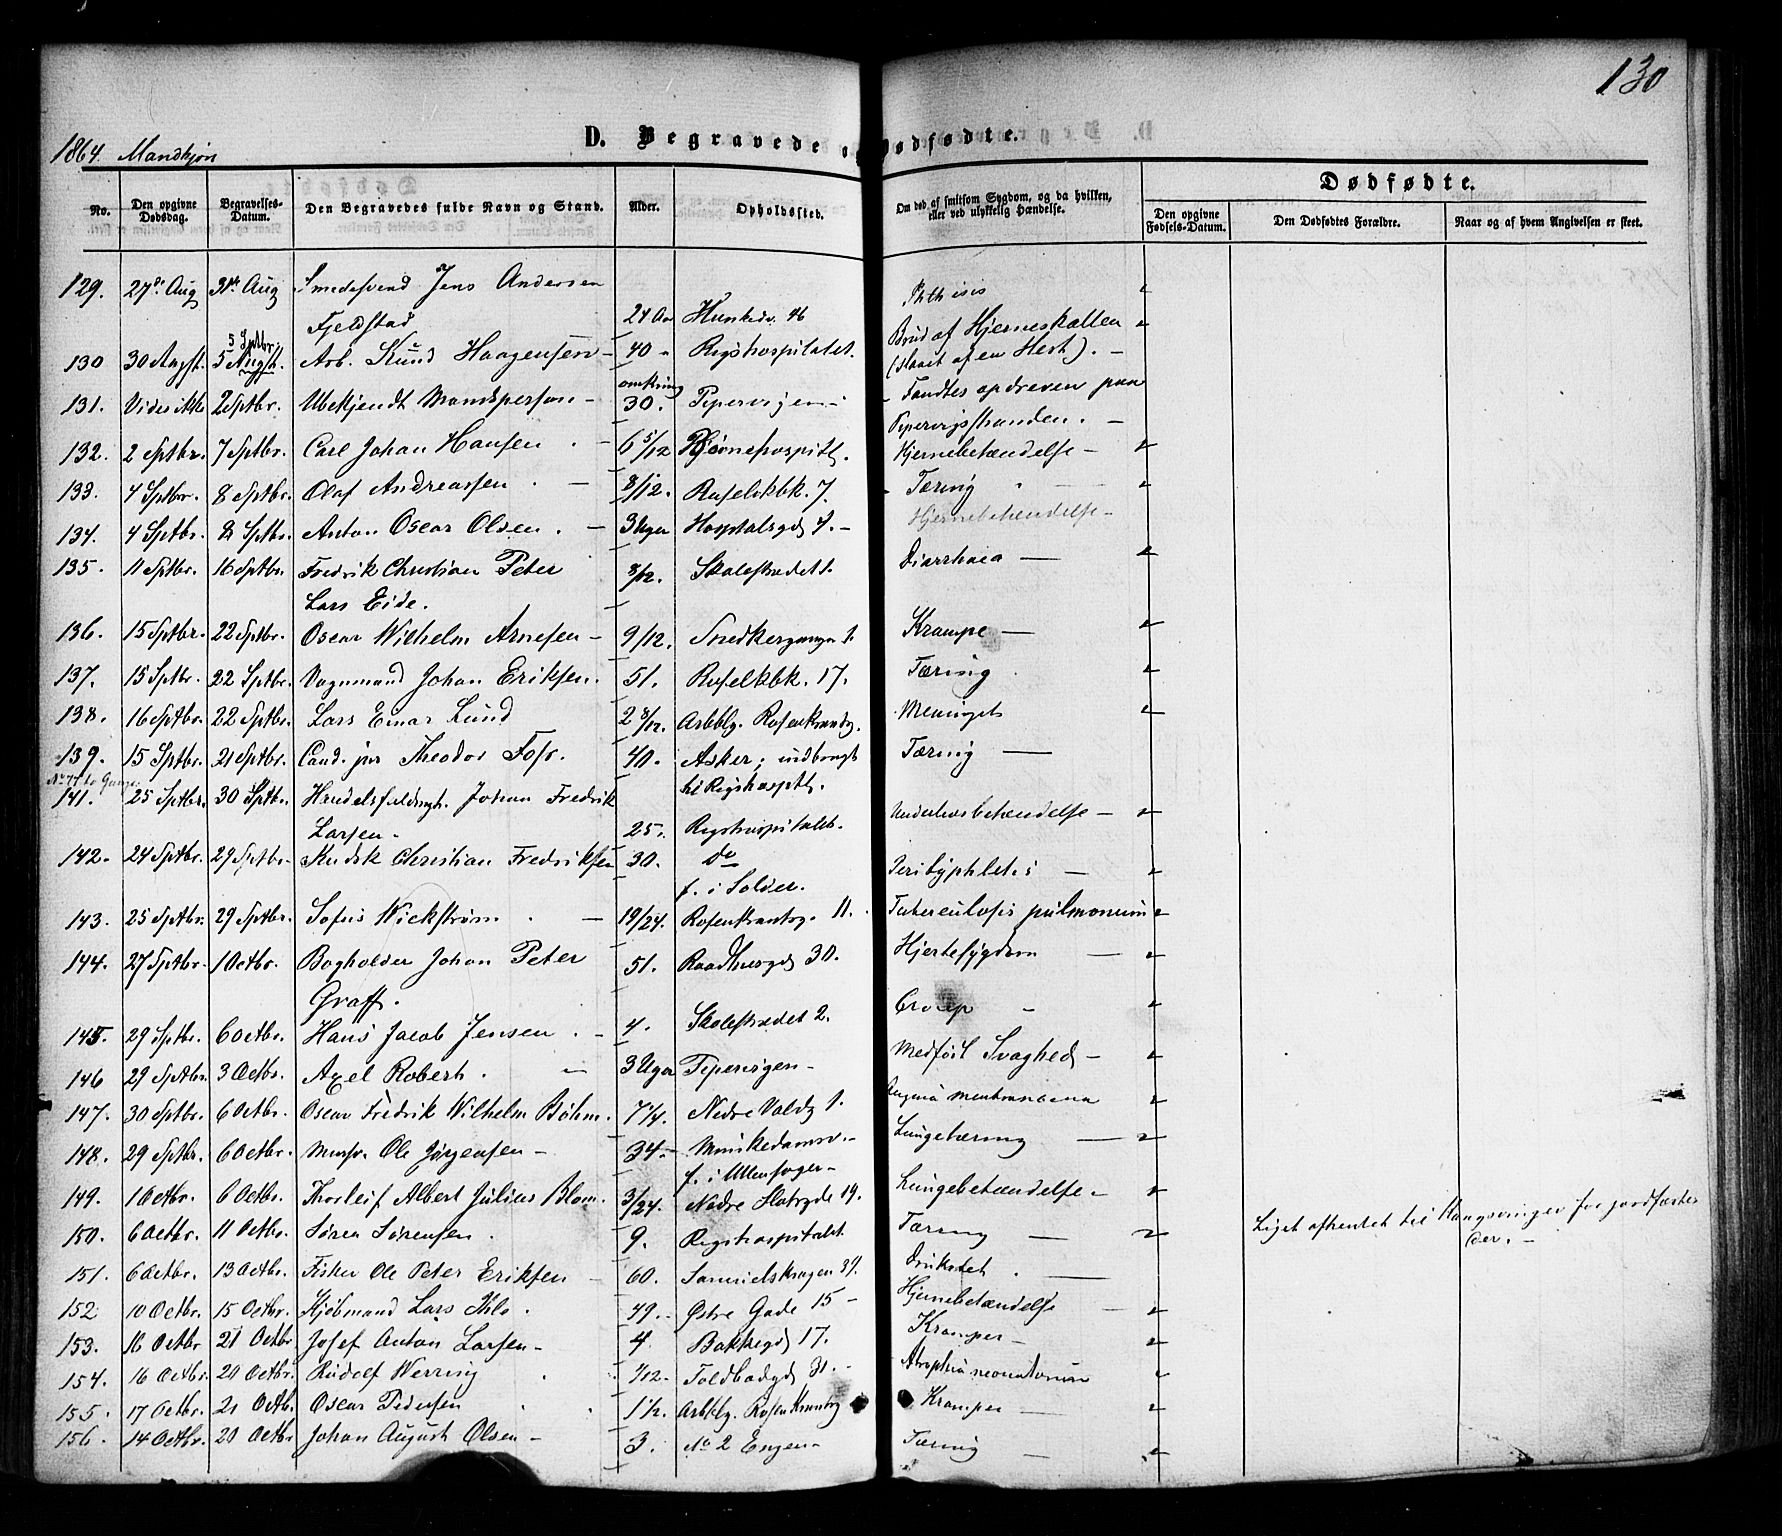 130
1864. Mandkjøn
D. Begravede o
Dødfødte.
No.
Den opgivne Dødsdag.
Begravelses-Datum.
Den Begravedes fulde Navn og Stand.
Alder.
Opholdssted.
Om død af smitsom Sygdom, og da hvilken, eller ved ulykkelig Hændelse.
Dødfødte.
Den opgivne Fødsels-Datum.
Den Dødfødtes Forældre.
Naar og af hvem Angivelsen er skeet.
129. 27de Aug 31te Aug Smedesvend Jens Andersen Phthisis
Fjeldstad 24 Aar 46
5 Sptbr.
130 30 Augst. 5 Augst. Arb. Knud Haagensen - 40 " Rigshospitalet. Brud af Hjerneskallen
(slaaet af en Hest). -
omkring
131. Vides ikke 2 Sptbr. Ubekjendt Mandsperson - 30. Pipervigen - Fandtes opdreven paa
Pipervigstranden. -
132. 2 Sptbr. 7 Sptbr. Carl Johan Hansen . - 6 5/12 Børnehospitl. Hjernebetændelse -
133. 4 Sptbr. 8 Sptbr. Olaf Andreassen . - 8/12. Ruseløkbk. 7. Tæring
134. 4 Sptbr. 8 Sptbr. Anton Oscar Olsen . - 3 Uger Hospitalsgd 4. - Hjernebetændelse -
135. 11 Sptbr. 16 Sptbr. Fredrik Christian Peter 8/12. Skolestrædet 1. Diarrhoea -
Lars Eide.
136. 15 Sptbr. 22 Sptbr. Oscar Wilhelm Arnesen - 9/12. Snedkergangen 1. Krampe -
137. 15 Sptbr. 22 Sptbr. Vognmand Johan Eriksen. 51. Ruselkbk. 17. Tæring
138. 16 Sptbr. 22 Sptbr. Lars Einar Lund 2 8/12. Arbblg. Rosenkrandzg. Meningit
139. 15 Sptbr. 21 Sptbr. Cand. jur Theodor Foss. 40. Asker; indbragt Tæring -
til Rigshospitl.
141. 25 Sptbr. 30 Sptbr. Handelsfuldmgt. Johan Fredrik Underlivsbetændelse -
Larsen - 25. Rigshospitalet.
142. 24 Sptbr. 29 Sptbr. Christian Fredriksen 30. do Perityphlitis -
f. i Solør.
143. 25 Sptbr. 29 Sptbr. Sofus Wickstrøm . - 19/24. Rosenkrantzg. 11. Tuberculosis pulmonum
144. 27 Sptbr. 1 Octbr. Bogholder Johan Peter 51. Raadhusgd 30. Hjertesygdom -
Graff.
145. 29 Sptbr. 6 Octbr. Hans Jacob Jensen . - 4. Skolestrædet 2. Croup -
146 29 Sptbr. 3 Octbr. Axel Robert . - 3 Uger Pipervigen - Medfødt Svaghed -
147. 30 Sptbr. 6 Octbr. Oscar Fredrik Wilhelm Bøhm. 7 1/4. Nedre Voldg 1. Angina membranacea
148. 29 Sptbr. 6 Octbr. Mursv. Ole Jørgensen - 34. - Munkedamsv. - Lungetæring -
f. i Ullensager -
149. 1 Octbr. 6 Octbr. Thorleif Albert Julius Blom. 3/24. Nedre Slotsgde 19. Lungebetændelse -
150. 6 Octbr. 11 Octbr. Søren Sørensen . 9. Rigshospitalet Tæring - Liget afhentet til Kongsvinger for jordfæstes
der. -
151. 6 Octbr. 13 Octbr. Fisker Ole Peter Eriksen - 60. Samuelskragen 31. Druknet . -
152 10 Octbr. 15 Octbr. Kjøbmand Lars Ihle . 49. - Østre Gade 15 - Hjernebetændelse -
153. 16 Octbr. 21 Octbr Josef Anton Larsen - 4 Bakkegd 17. Kramper -
154. 16 Octbr. 20 Octbr. Rudolf Werring . 1/12 - Toldbodgd 31. - Atrophia neonatorum
155. 17 Octbr. 21 Octb. Oscar Pedersen . 1 1/2. Arbblg. Rosenkrantzg Kramper -
156. 14 Octbr. 20 Octbr Johan August Olsen - 3. No 2 Engen - Tæring -